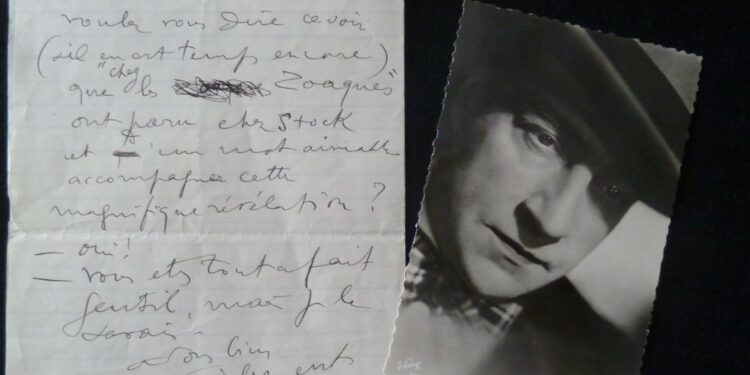 voulez vous dire ce soir
(s'il en est temps encore)
"chez
que les Zoaques"
ont paru chez Stock
et d'un mot aimable
accompagner cette
magnifique révélation ?
— oui !
— vous etes tout a fait
gentil, mais je le
savais -
a vous bien
Vinx